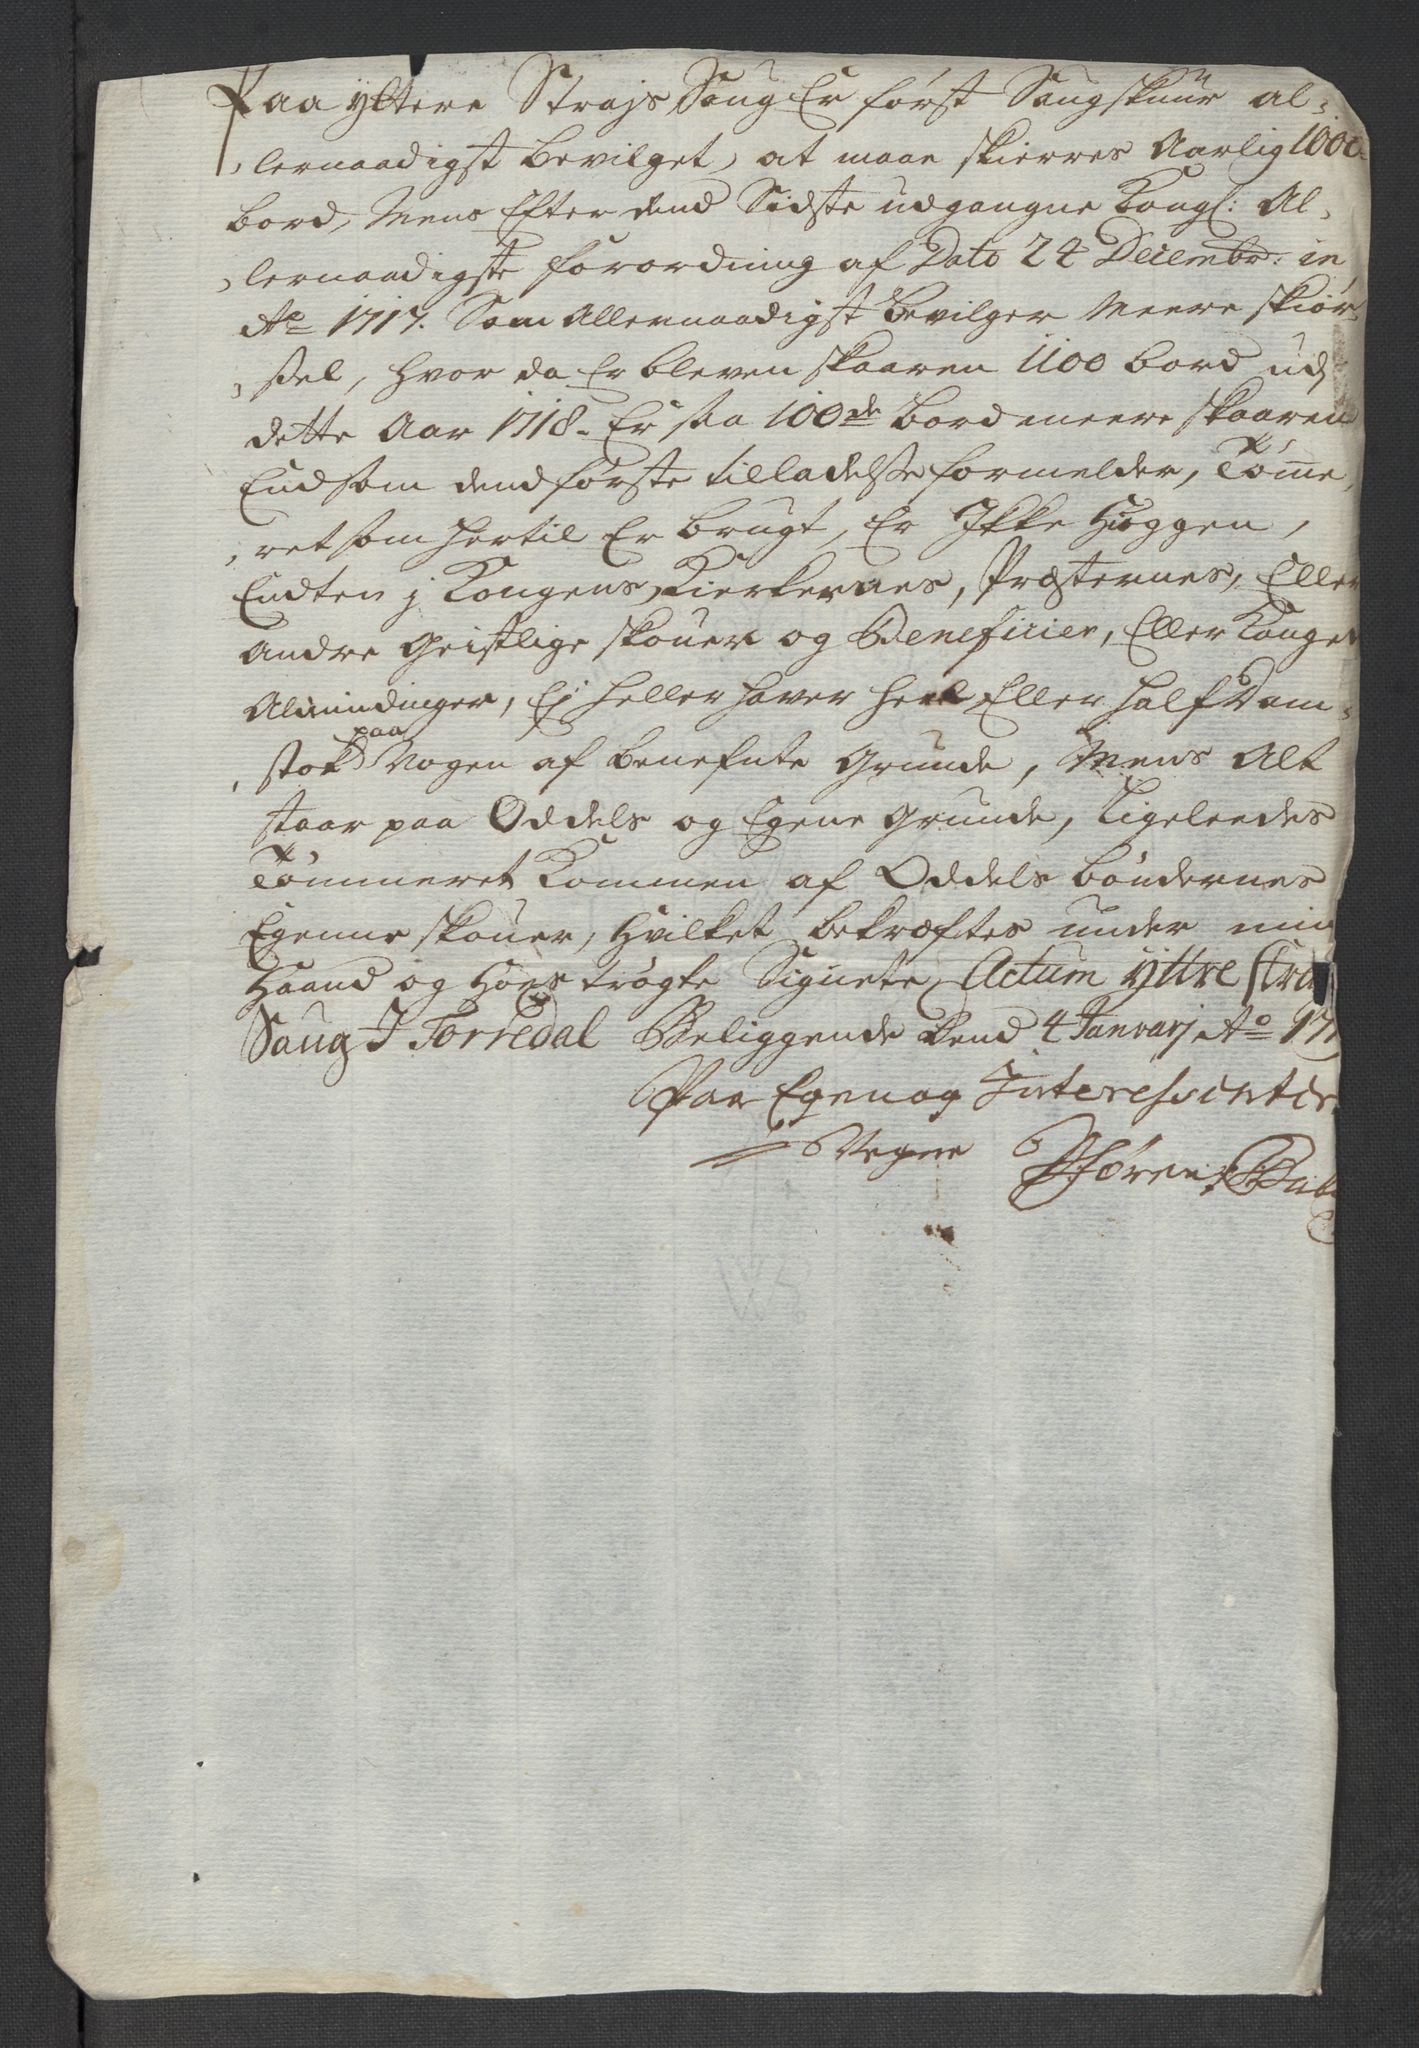 Paa yttere Strajs Saug Er først Saugskuur al-
lernaadigst bevilget, at maae skierres Aarlig 1000
bord, Mens Efter dend Sidste udgangne Kongl: Al-
lernaadigste forordning af Dato 24 Decembr: in
Ao 1717. Som Allernaadigst bevilger Meere skiør-
sel, hvor da Er bleven skaaren 1100 bord udj
dette Aar 1718. Er saa 100de bord meere skaaren
End som dend første tilladelse formelder, Tøme-
ret som hertil Er brugt, Er Ikke Hoggen,
Endten j Kongens, Kierkernes, Præsternes, Eller
Andre Geistlige skouer og Beneficier, Eller Konge
Almindinger, Ej heller haver heel Eller half Dam-
stok paa Nogen af benefnte Grunde, Mens Alt
staar paa Oddels og Egene Grunde, Ligeleedes
Tømmeret Kommen af Oddels bøndernes
Egenne skouer, Hvilket bekræftes under min
Haand og Hoes trøgte Signete, Actum yttre Stra
Saug I Torredal Beliggende Dend 4 Januarj Ao 171
Paa Egen og Interessenter
Vegne Søren